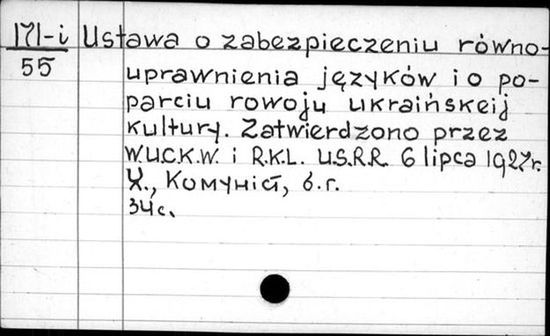 171-i Ustawa o zabezpieczeniu równo-
55
uprawnienia języków i o po-
parciu rowoju ukraińskeij
kultury. Zatwierdzono przez
W.U.C.K.W. i R.K.L. U.S.R.R. 6 lipca 1927r.
Х., Комунiст, б.г.
34с.